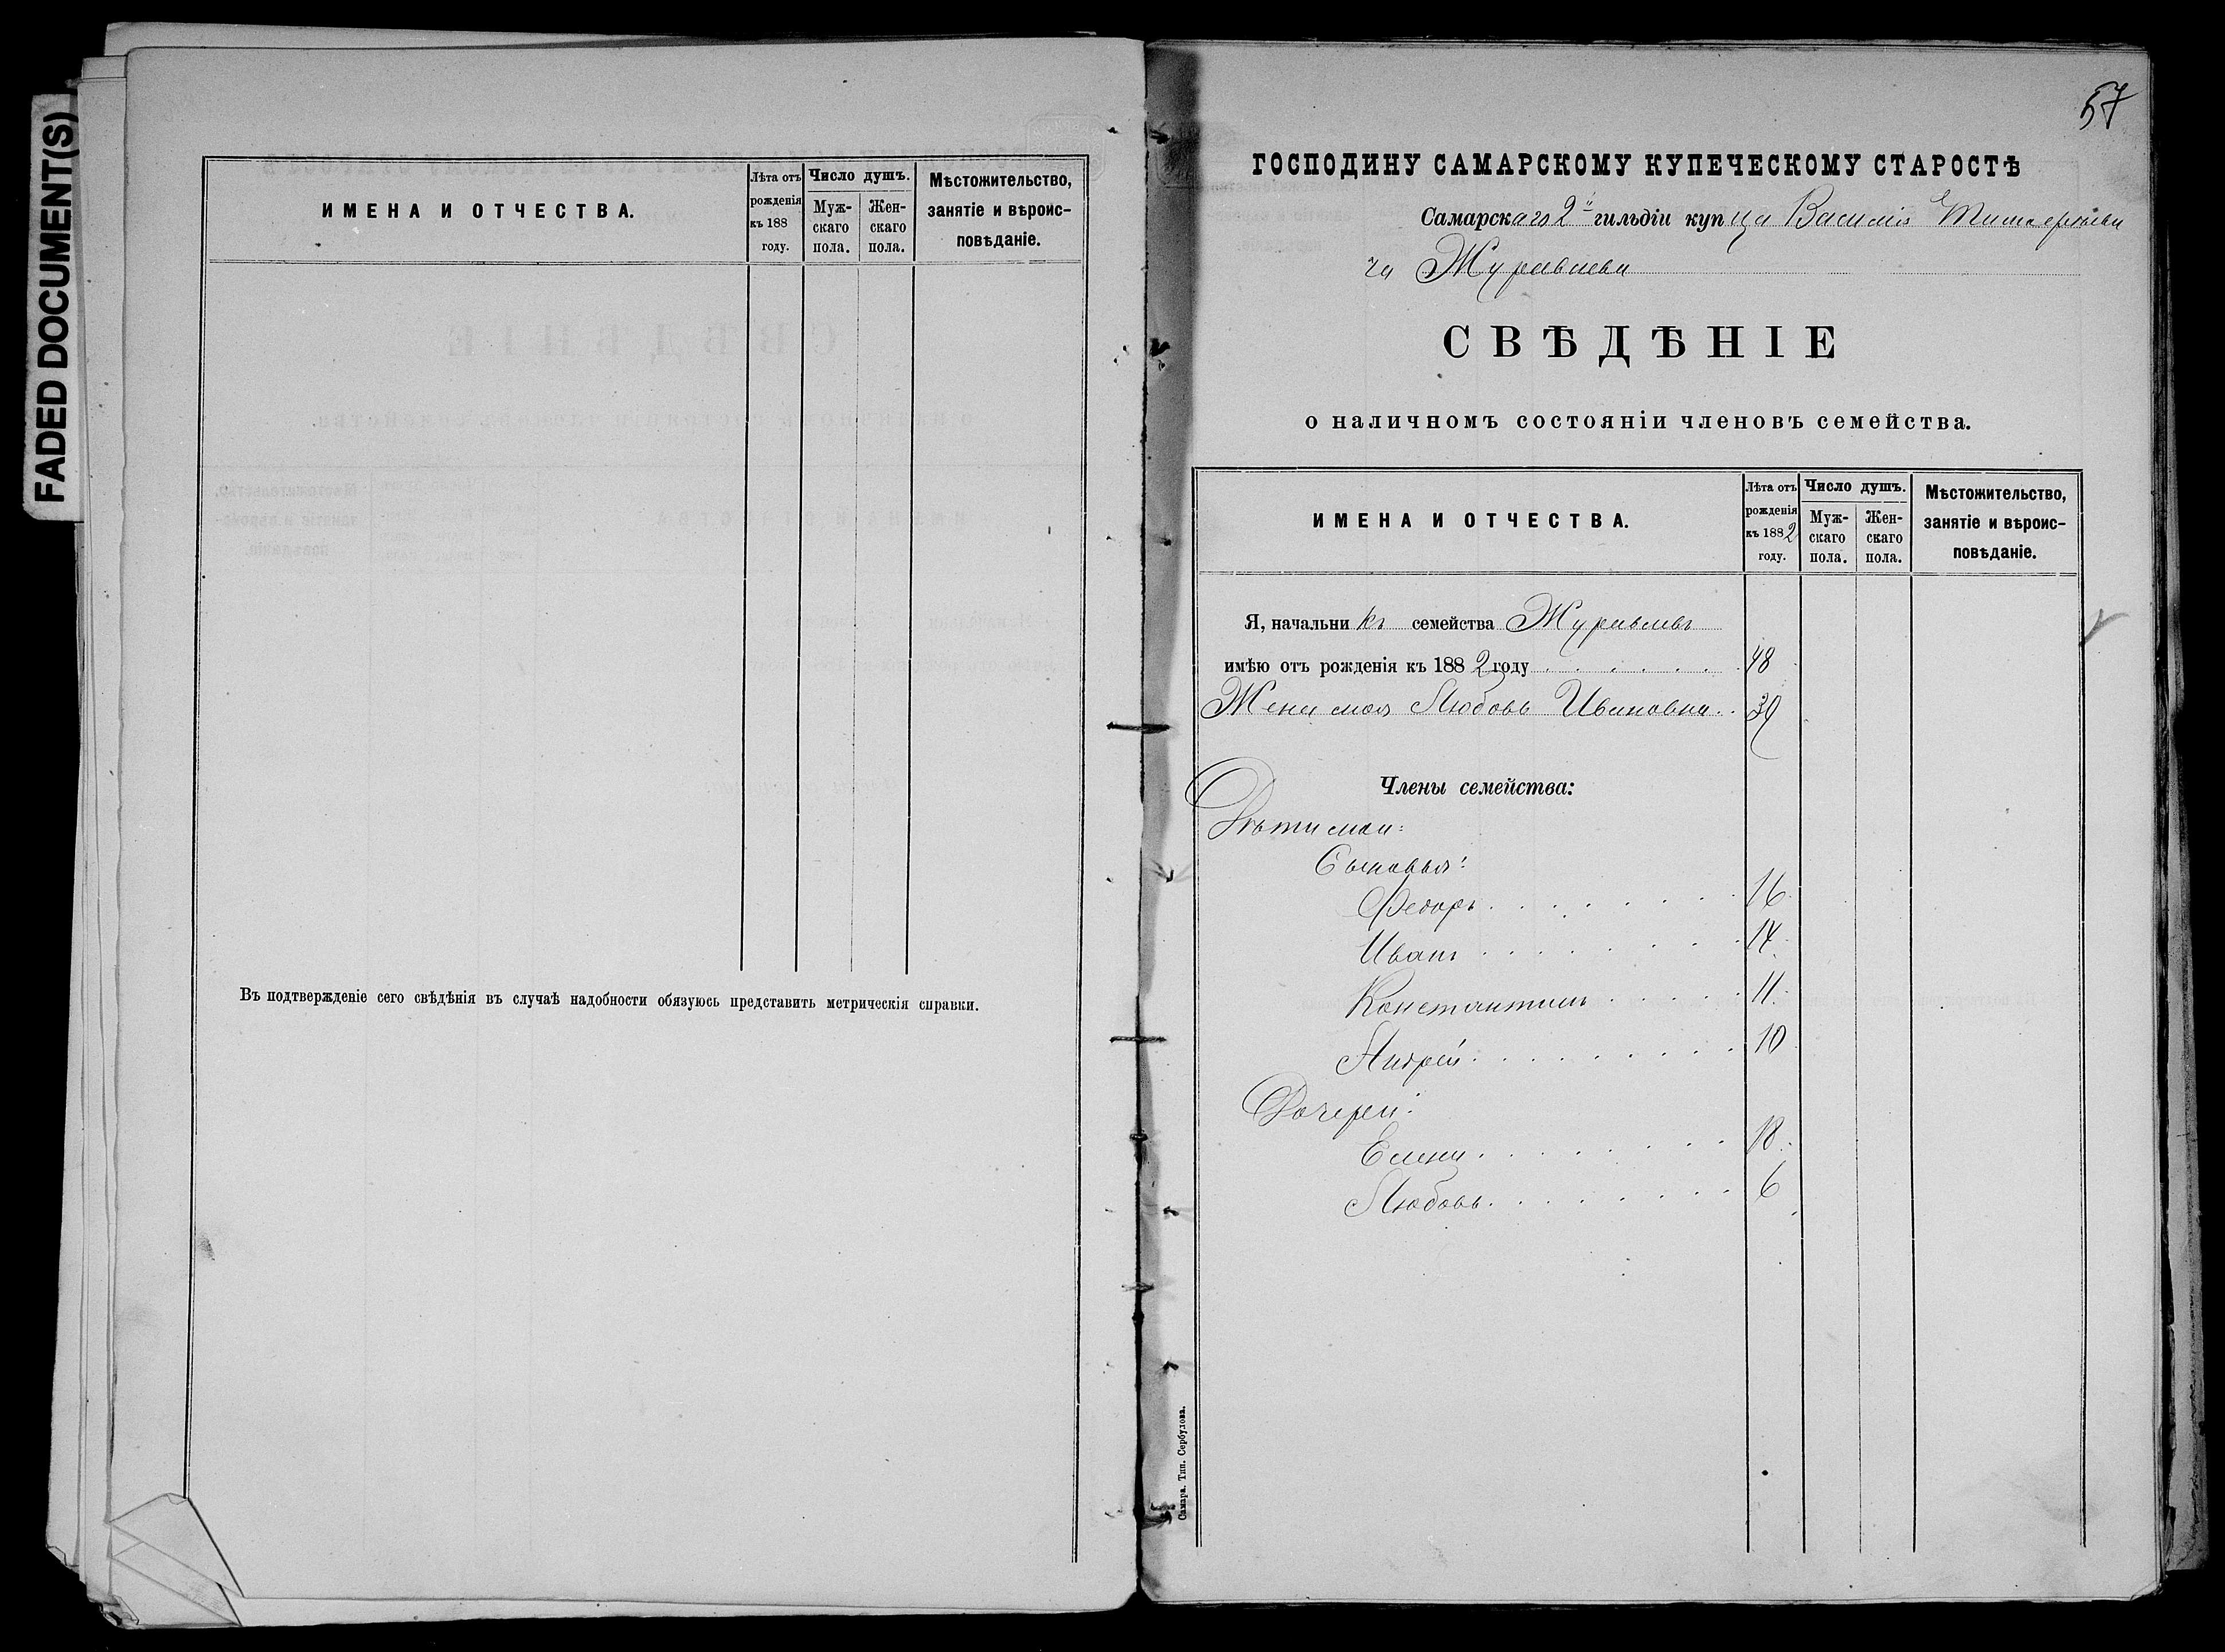 FADED DOCUMENT(S)
ИМЕНА И ОТЧЕСТВА.
Лѣта отъ рожденія къ 188 году.
Число душъ.
Мужскаго пола.
Женскаго пола.
Мѣстожительство, занятіе и вѣроисповѣданіе.
Въ подтвержденіе сего свѣдѣнія въ случаѣ надобности обязуюсь представить метрическія справки.
57
ГОСПОДИНУ САМАРСКОМУ КУПЕЧЕСКОМУ СТАРОСТѢ
Самарскаго 2й гильдіи купца Василія
Журавлева
СВѢДѢНІЕ
о наличномъ состояніи членовъ семейства.
ИМЕНА И ОТЧЕСТВА.
Лѣта отъ рожденія къ 1882 году.
Число душъ.
Мужскаго пола.
Женскаго пола.
Мѣстожительство, занятіе и вѣроисповѣданіе.
Я, начальникъ семейства Журавлевъ
имѣю отъ рожденія къ 1882 году 48
Жена моя Любовь Ивановна 39
Члены семейства:
Дѣти мои:
Сыновья:
Федоръ 16
Иванъ 14
Константинъ 11
Андрей 10
Дочери:
Елена 18
Любовь 6
Самара. Тип. Сербулова.